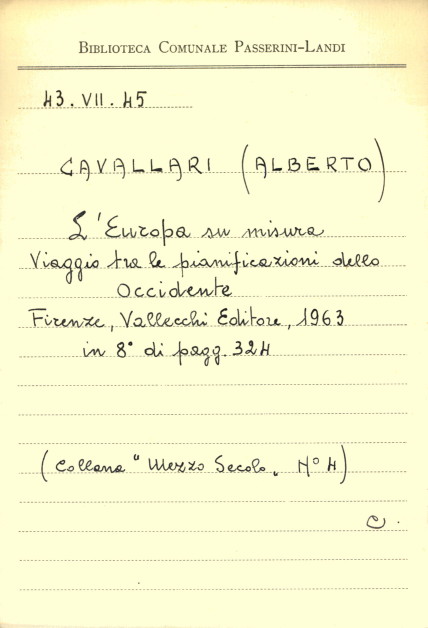 BIBLIOTECA COMUNALE PASSERINI-LANDI
43.VII.45
CAVALLARI (ALBERTO)
L'Europa su misura
Viaggio tra le pianificazioni dello
Occidente
Firenze, Vallecchi Editore, 1963
in 8° di pagg. 324
(Collana "Mezzo Secolo„ N° 4)
C.